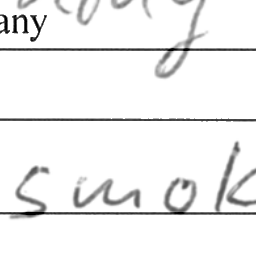 any
smok